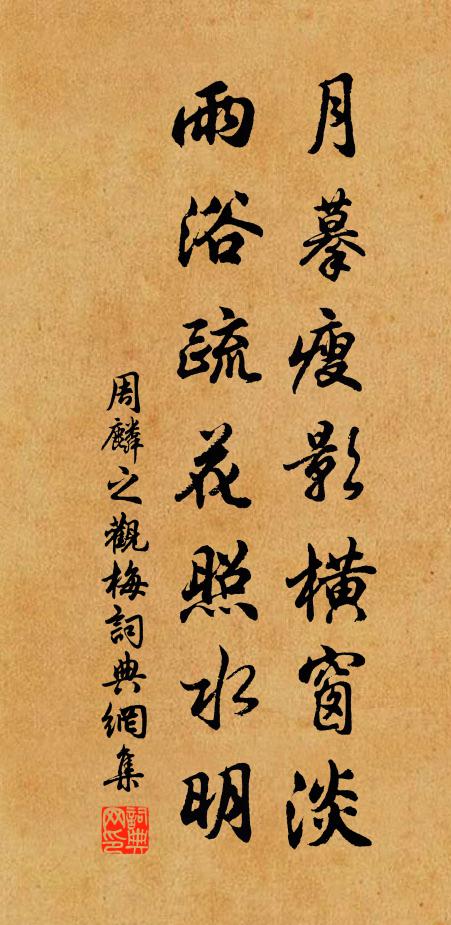 月摹瘦影橫窗淡
雨浴疏花照水明
周麟之觀梅詞典網集
詞典网印